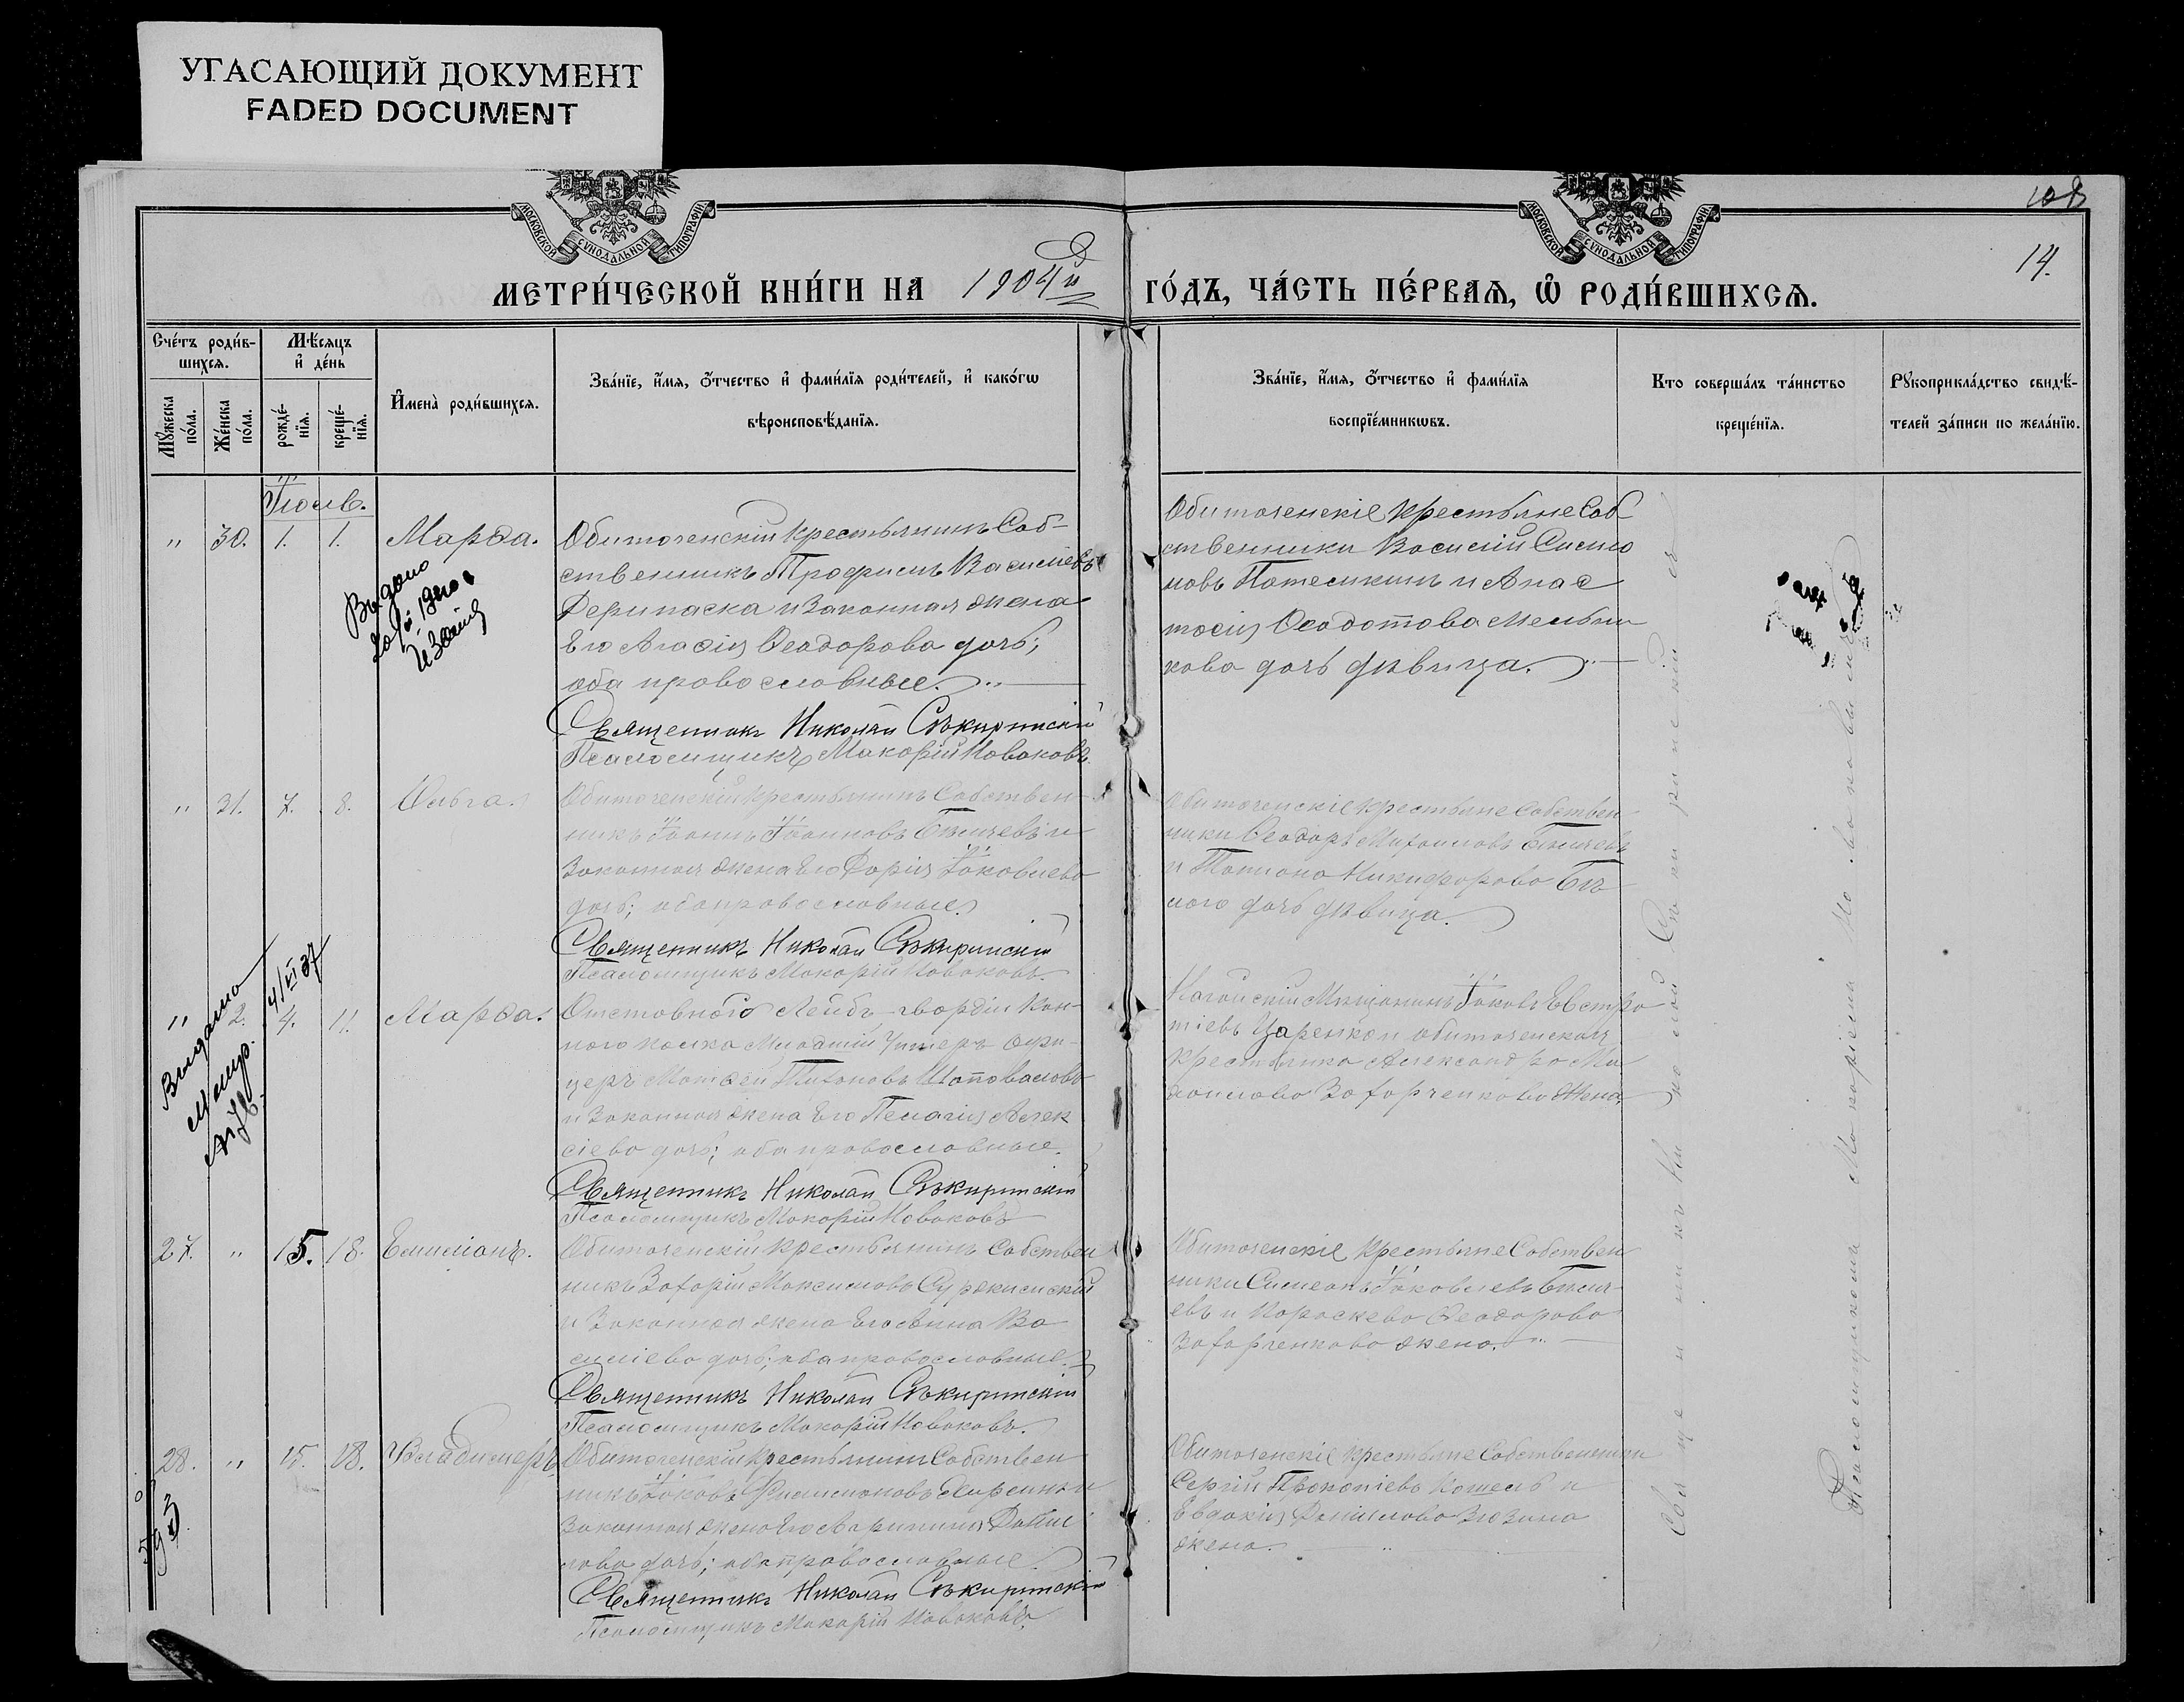 УГАСАЮЩИЙ ДОКУМЕНТ
FADED DOCUMENT
МОСКОВСКОЙ СѴНОДАЛЬНОЙ ТИПОГРАФІИ
МОСКОВСКОЙ СѴНОДАЛЬНОЙ ТИПОГРАФІИ
108
14.
МЕТРИ́ЧЕСКОЙ КНИ́ГИ НА 1904й
ГО́ДЪ, ЧА́СТЬ ПЕ́РВАѦ, Ѡ҆ РОДИ́ВШИХСѦ.
Сче́тъ роди́в-
шихсѧ.
Мꙋ́жеска по́ла.
Же́нска по́ла.
Мѣ́сѧцъ
и҆ де́нь
рожде́-
нїѧ.
креще́-
нїѧ.
И҆мена̀ роди́вшихсѧ.
Зва́нїе, и҆́мѧ, ѻ҆́тчество и҆ фами́лїѧ роди́телей, и҆ како́гѡ
вѣроисповѣ́данїѧ.
Зва́нїе, и҆́мѧ, ѻ҆́тчество и҆ фами́лїѧ
воспрїе́мникѡвъ.
Кто соверша́лъ та́инство
креще́нїѧ.
Рꙋкоприкла́дство свидѣ́-
телей за́писи по жела́нїю.
Іюль.
" 30. 1. 1. Марѳа.
Обиточенскій крестьянинъ Соб-
ственникъ Трофимъ Василіевъ
Дерипаска и Законная жена
Его Агафія Ѳеодорова дочь;
оба православные.
Священникъ Николай Сѣкиринскій
Псаломщикъ Макарій Новаковъ.
Обиточенскіе крестьяне Соб-
ственники Василій Симео
новъ Потемкинъ и Анас
тасія Ѳеодотова Мельни
кова дочь дѣвица.
" 31. 7. 8. Ольга.
Обиточенскій крестьянинъ Собствен
никъ Іоаннъ Іоанновъ и
Законная жена Его Дарія Іаковлева
дочь; оба православные.
Священникъ Николай Сѣкиринскій
Псаломщикъ Макарій Новаковъ.
Обиточенскіе крестьяне Собствен
ники Ѳеодоръ Михаиловъ
и Татіана Никифорова Бѣ
лого дочь дѣвица.
Выдано
метр.
4/VI 37
" 4. 11. Марѳа.
Отставного Лейбъ-гвардіи Кон-
ного полка Младшій Унтеръ Офи-
церъ Матфей Тихоновъ Шаповаловъ
и Законная жена Его Пелагія Алек
сіева дочь; оба православные.
Священникъ Николай Сѣкиринскій
Псаломщикъ Макарій Новаковъ
Ногайскій Мѣщанинъ Іаковъ Евстра
тіевъ Царенко и обиточенская
крестьянка Александра Ми
хаилова Захарченкова жена.
27. " 15. 18. Емиліанъ.
Обиточенскій крестьянинъ Собствен
никъ Захарій Максимовъ
и Законная жена Его Анна Ва
силіева дочь; оба православные.
Священникъ Николай Сѣкиринскій
Псаломщикъ Макарій Новаковъ.
Обиточенскіе крестьяне Собствен
ники Симеонъ Іаковлевъ
и Параскева Ѳеодорова
Захарченкова жена.
28. " 15. 18. Владимеръ.
Обиточенскій крестьянинъ Собствен
никъ Іаковъ
Законная жена Его Марина Дани
лова дочь; оба православные.
Священникъ Николай Сѣкиринскій
Псаломщикъ Макарій Новаковъ.
Обиточенскіе крестьяне Собственники
Сергій Прокопіевъ Кошель и
Евдокія Данилова Зюзина
жена.
Священникъ Николай Сѣкиринскій съ
Псаломщикомъ Макаріемъ Новаковымъ